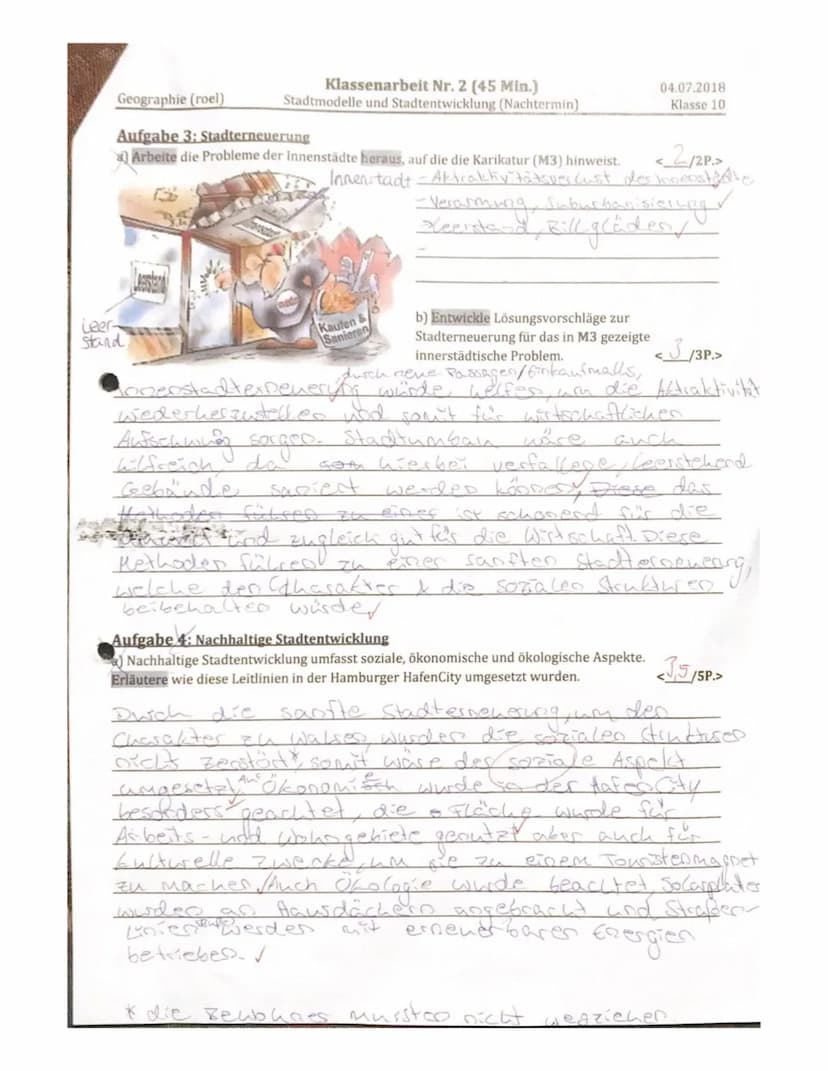 Klassenarbeit Nr. 2 (45 Min.)
04.07.2018
Geographie (roel)
Stadtmodelle und Stadtentwicklung (Nachtermin)
Klasse 10
Aufgabe 3: Stadterneuerung
a) Arbeite die Probleme der Innenstädte heraus, auf die die Karikatur (M3) hinweist.
<2/2P.>
Innenstadt - Aktraktivitätsverlust der Innenstädte
- Verarmung, Suburbanisierung
Leerstand, Billigläden
Leerstand
Kaufen &
Sanieren
Leer-
stand
b) Entwickle Lösungsvorschläge zur
Stadterneuerung für das in M3 gezeigte
innerstädtische Problem.
<3/3P.>
durch neue Passagen/Einkaufmalls,
Innenstadterneuerung würde helfen, um die Aktraktivität
wiederherzustellen und somit für wirtschaftlichen
Aufschwung sorgen. Stadtumbau wäre auch
hilfreich, da hierbei verfallene, leerstehend
Gebäude saniert werden können, Diese das
Methoden führen zu einer ist schonend für die
und zugleich gut für die Wirtschaft. Diese
Methoden führen zu einer sanften Stadterneuerung,
welche den Charakter & die sozialen Strukturen
beibehalten würde.
Aufgabe 4: Nachhaltige Stadtentwicklung
a) Nachhaltige Stadtentwicklung umfasst soziale, ökonomische und ökologische Aspekte.
Erläutere wie diese Leitlinien in der Hamburger HafenCity umgesetzt wurden.
<3,5/5P.>
Durch die sanfte Stadterneuerung, um den
Charakter zu wahren, wurden die sozialen Strukturen
nicht zerstört*, somit wäre der soziale Aspekt
umgesetzt. Auf Ökonomie wurde in der HafenCity
besonders geachtet, die Fläche wurde für
Arbeits- und Wohngebiete genutzt aber auch für
kulturelle Zwecke, um sie zu einem Touristenmagnet
zu machen. Auch Ökologie wurde beachtet, Solarplatten
wurden an Hausdächern angebracht und Straßen-
Linien werden mit erneuerbaren Energien
betrieben.
* die Bewohner mussten nicht wegziehen.